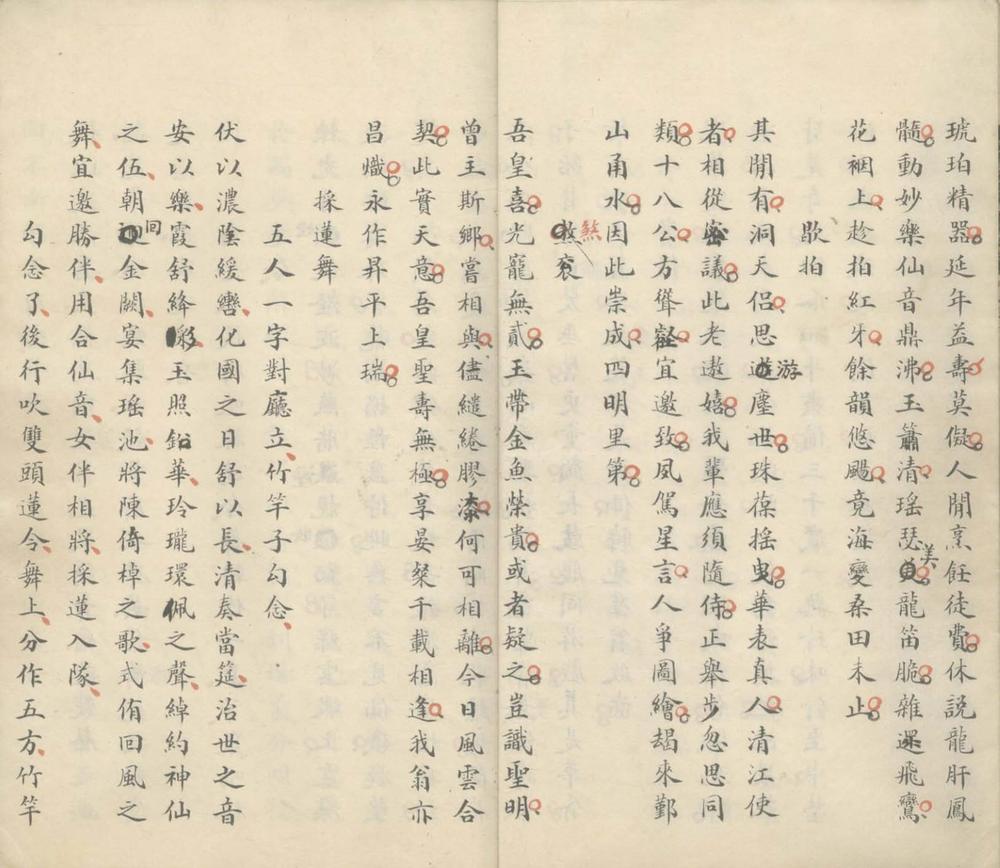 琥珀精器延年益壽莫儗人間烹飪徒費休説龍肝鳳
髓動妙樂仙音鼎沸玉簫清瑶瑟美龍笛脆雜還飛鸞
花裀上趁拍紅牙餘韻悠颺竟海變桑田未止
歇拍
其間有洞天侶思游塵世珠葆揺曳華表真人清江使
者相從密議此老遨嬉我輩應須隨侍正舉步忽思同
類十八公方聳壑宜邀致夙駕星言人爭圖繪朅來鄞
山甬水因此崇成四明里第
煞衮
吾皇喜光寵無貳玉帶金魚榮貴或者疑之豈識聖明
曾主斯鄉嘗相與儘繾綣膠漆何可相離今日風雲合
契此實天意吾皇聖壽無極享晏粲千載相逢我翁亦
昌熾永作昇平上瑞
採蓮舞
五人一字對廳立竹竿子勾念
伏以濃陰緩轡化國之日舒以長清奏當筵治世之音
安以樂霞舒絳彩玉照鉛華玲瓏環佩之聲綽約神仙
之伍朝回金闕宴集瑤池將陳倚棹之歌式侑回風之
舞宜邀勝伴用合仙音女伴相將採蓮入隊
勾念了後行吹雙頭蓮令舞上分作五方竹竿